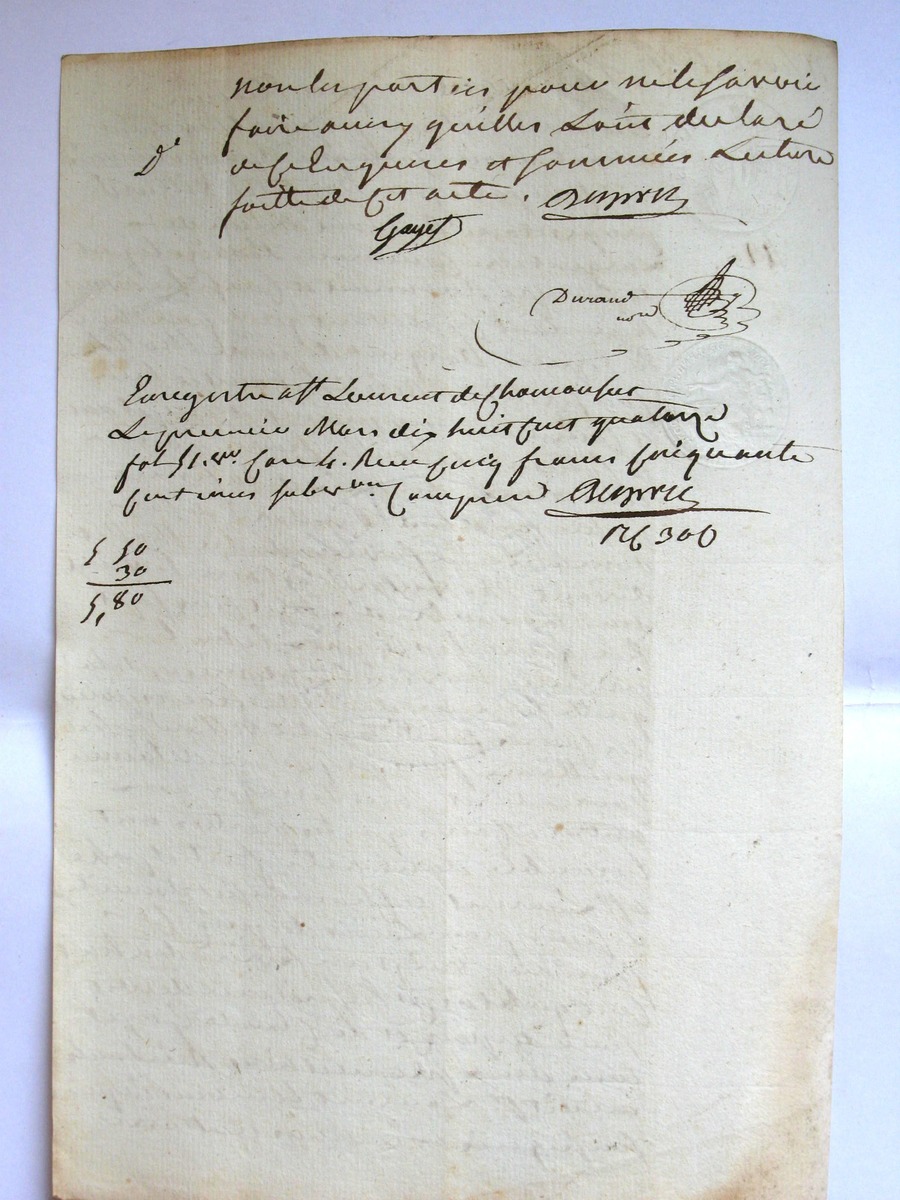 non les parties pour ne le savoir
faire ainsy qu'illes l'ont declaré
Dd
de ce le requises et sommées. Lecture
faitte de cet acte. Dupré
Gayet
Durand
nore
Enregistré a St Laurent de Chamousset
Le premier Mars dix huit cent quatorze
fol 51. vo. Case 4. Reçu cinq francs cinquante
centimes subvon Comprise Dupré
5 50
30
5,80